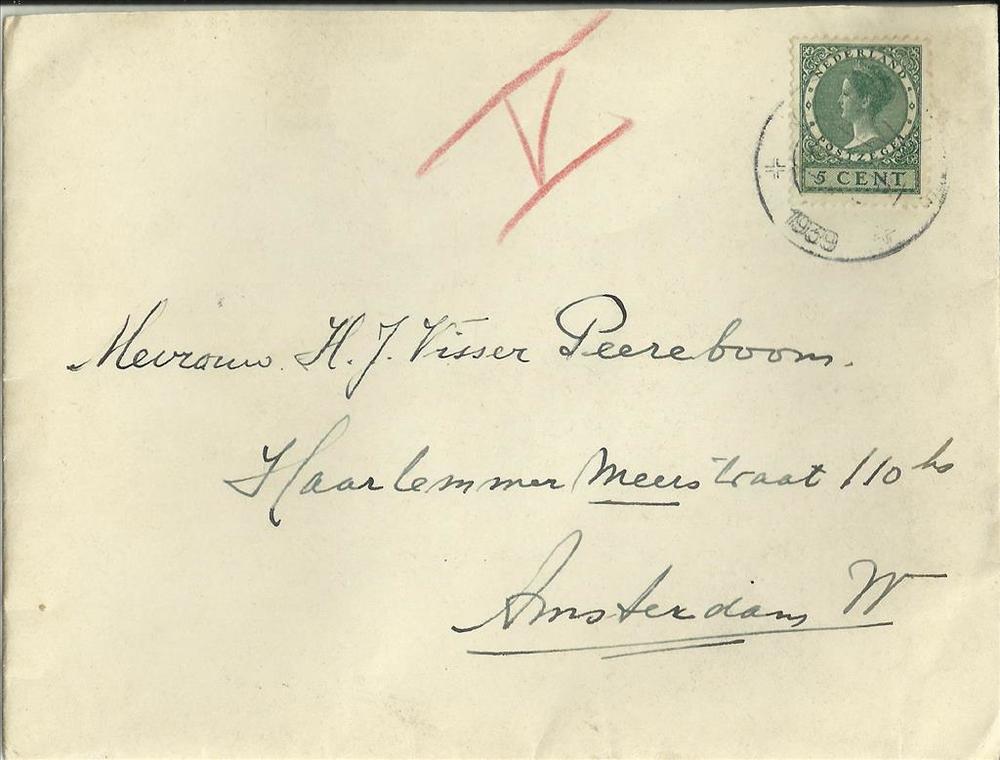 V
NEDERLAND
POSTZEGEL
5 CENT
1939
Mevrouw. H. J. Visser Peereboom.
Haarlemmer Meerstraat 110 hs
Amsterdam W